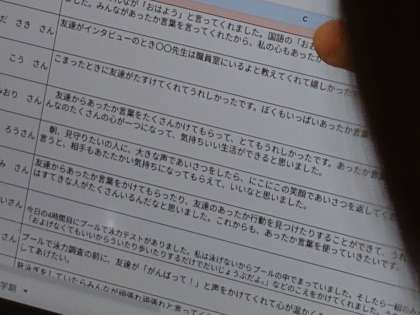 んなが「おはよう」と言ってくれました。国語の「おお
ました。みんながあったか言葉を言ってくれたから、私の心もあったか
c
だ さき さん
友達がインタビューのとき〇〇先生は職員室にいるよと教えてくれて嬉しかった
こう さん
こまったときに友達がたすけてくれてうれしかったです。ぼくもいっぱいあったか言葉
みおり さん
友達からあったか言葉をたくさんかけてもらって、とてもうれしかったです。あったか言葉
んなのたくさんの心が一つになって、気持ちいい生活ができると思いました。
ろう さん
朝、見守りたいの人に、大きな声であいさつをしたら、にこにこの笑顔であいさつを返してくれ
言うと、相手もあたたかい気持ちになってもらえて、いいなと思いました。
み さん
友達からあったか言葉をかけてもらったり、友達のあったか行動を見つけたりすることができて、うれ
はすてきな人がたくさんいるんだなと思いました。これからも、あったか言葉を使っていきたいです。
い さん
今日の4時間目にプールで泳力テストがありました。私は泳げないからプールの中でまっていました。そしたら一組の
「およげなくてもいいからういたり歩いたりするだけでだいじょうぶだよ。」などのこえをかけてくれました。
さん
プールで泳力調査の前に、友達が「がんばって！」と声をかけてくれて心が温かく
してあげたい。
学期